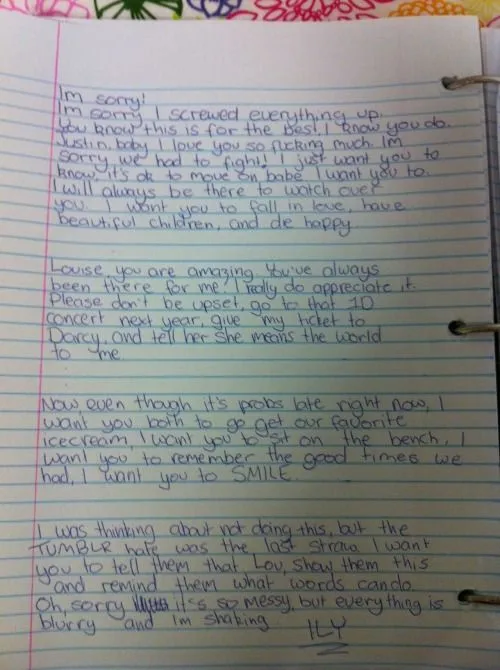 Im sorry!
Im sorry I screwed everything up.
You know this is for the best. I know you do.
Justin, baby I love you so fucking much. Im
sorry we had to fight! I just want you to
know it's ok to move on babe I want you to.
I will always be there to watch over
you. I want you to fall in love, have
beautiful children, and de happy
Louise, you are amazing. You've always
been there for me! I really do appreciate it.
Please don't be upset, go to that 1D
concert next year, give my ticket to
Darcy, and tell her she means the world
to me
Now, even though it's probs late right now, I
want you both to go get our favorite
icecream, I want you to sit on the bench, I
want you to remember the good times we
had, I want you to SMILE.
I was thinking about not doing this, but the
TUMBLR hate was the last straw. I want
you to tell them that Lou, show them this
and remind them what words can do.
Oh, sorry it's so messy, but everything is
blurry and Im shaking
ILY